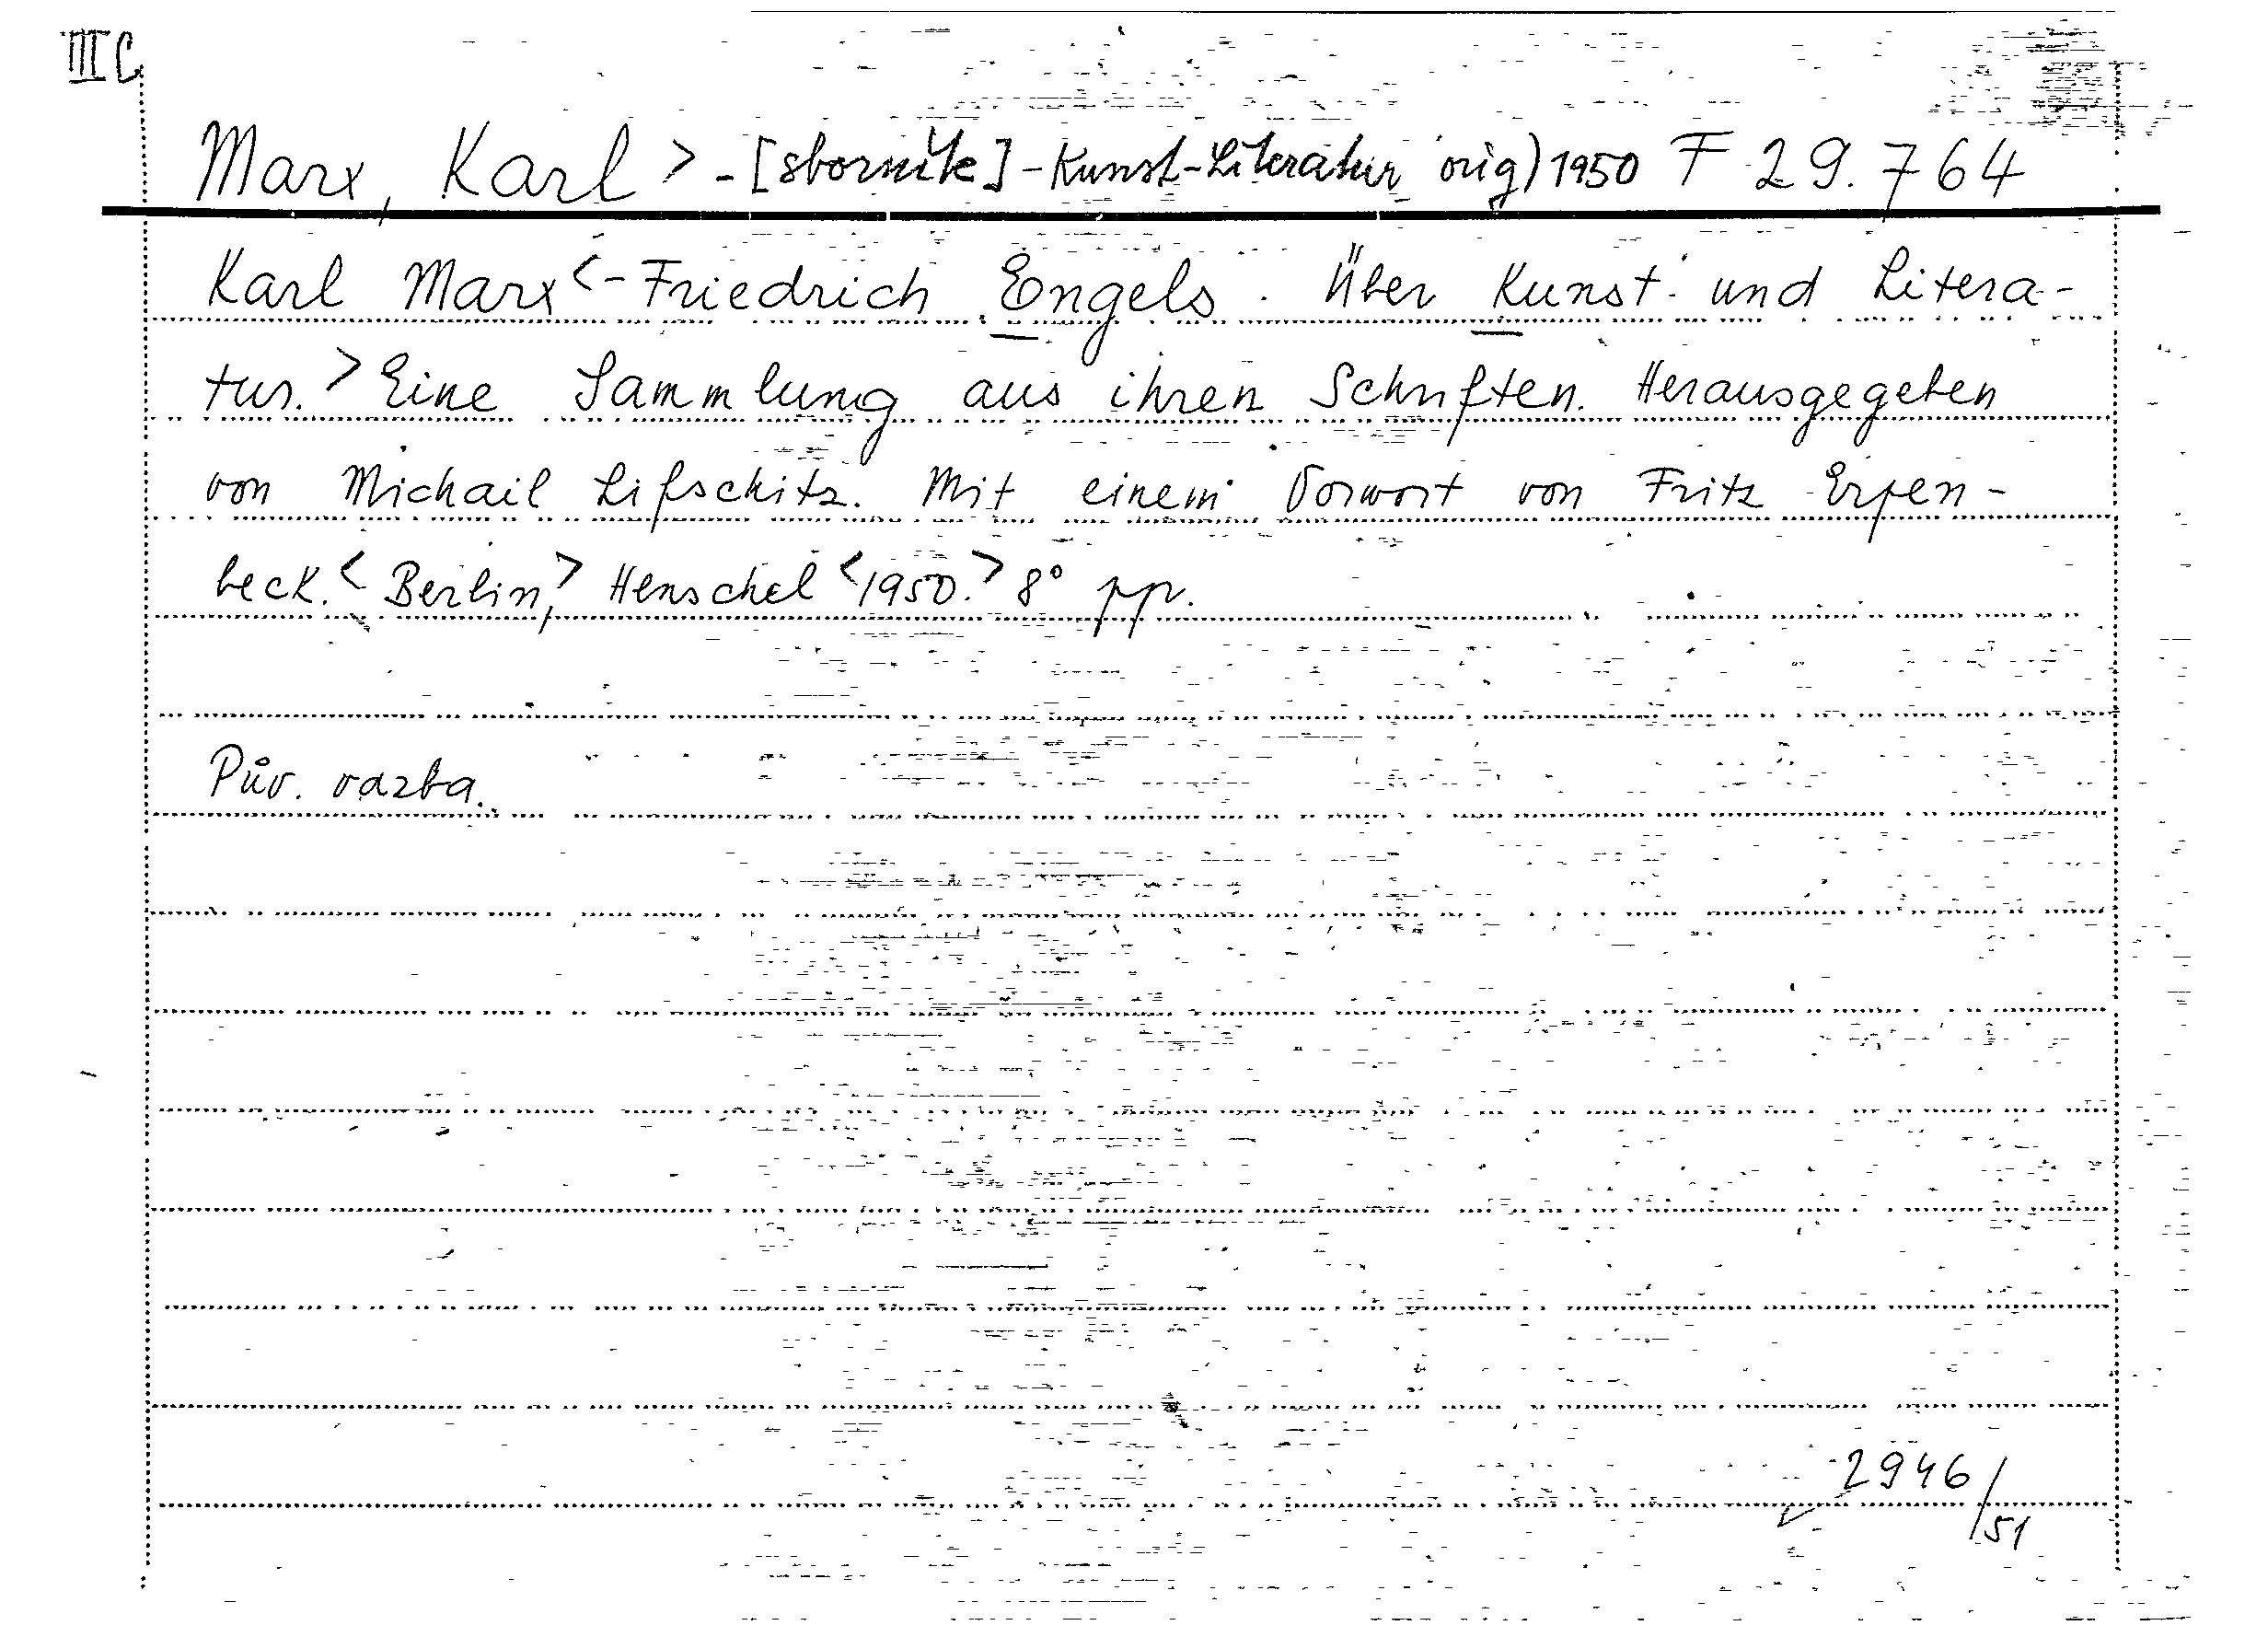 III C
Marx, Karl > - [sborník] - Kunst - Literatur orig) 1950 F 29.764
Karl Marx <- Friedrich Engels. Über Kunst und Litera-
tur. > Eine Sammlung aus ihren Schriften. Herausgegeben
von Michail Lifschitz. Mit einem Vorwort von Fritz Erpen-
beck. < Berlin, > Henschel < 1950. > 8° pp.
Pův. vazba.
2946/51